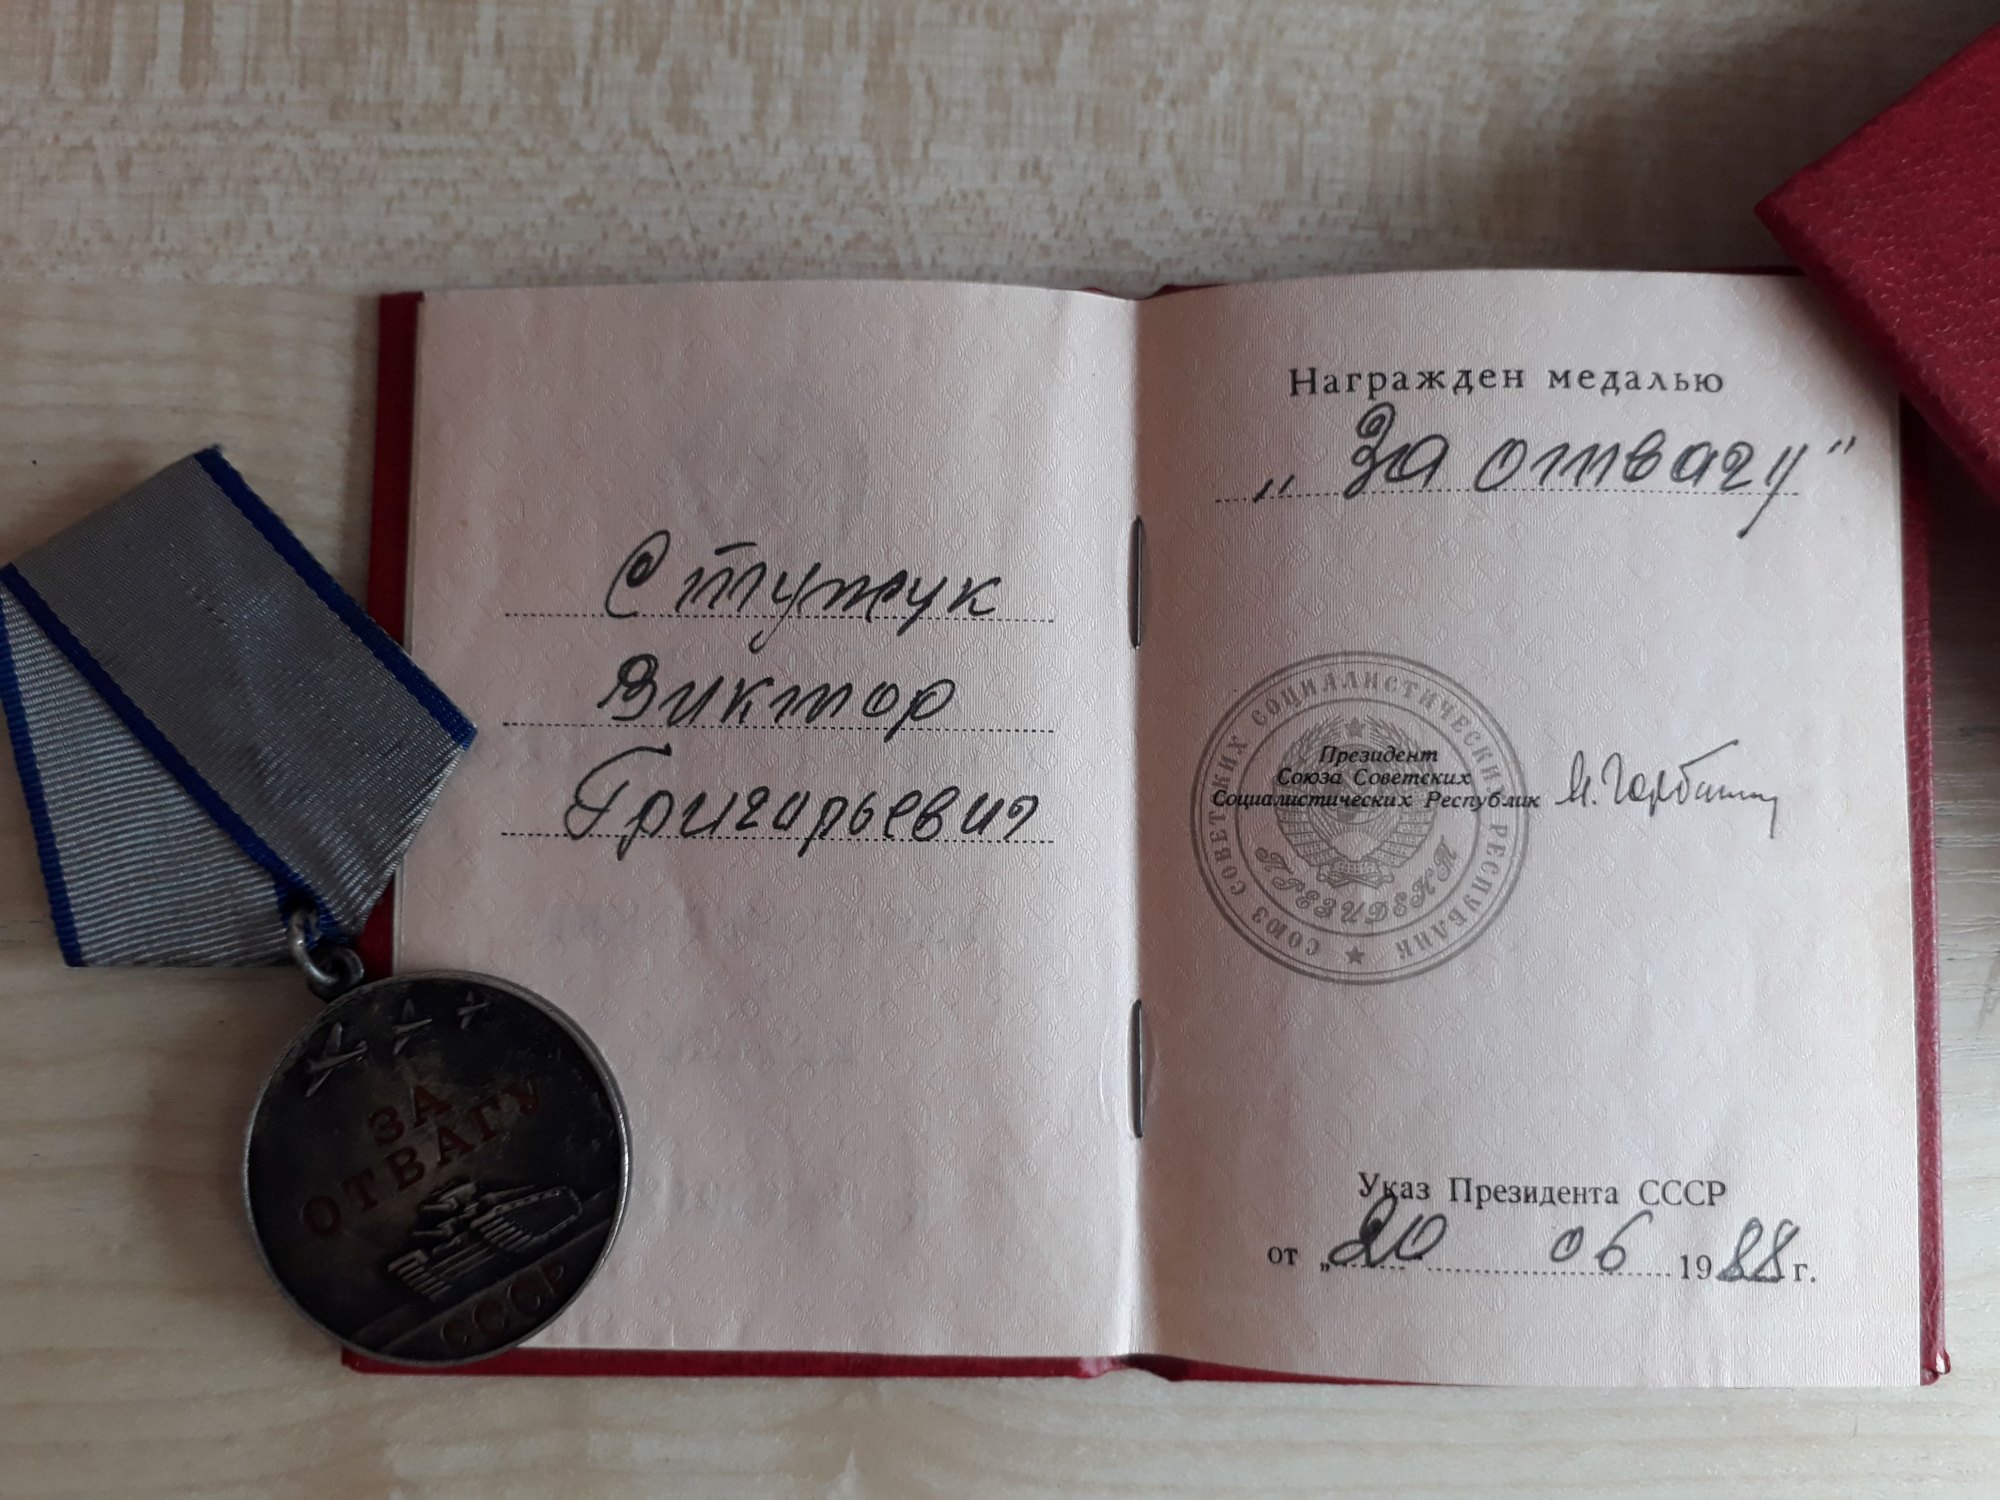 Стужук
Виктор
Григорьевич
Награжден медалью
„За отвагу"
СОЮЗ СОВЕТСКИХ СОЦИАЛИСТИЧЕСКИХ РЕСПУБЛИК
ПРЕЗИДЕНТ
Президент
Союза Советских
Социалистических Республик
Указ Президента СССР
от „20 06 1988 г.
ЗА
ОТВАГУ
СССР